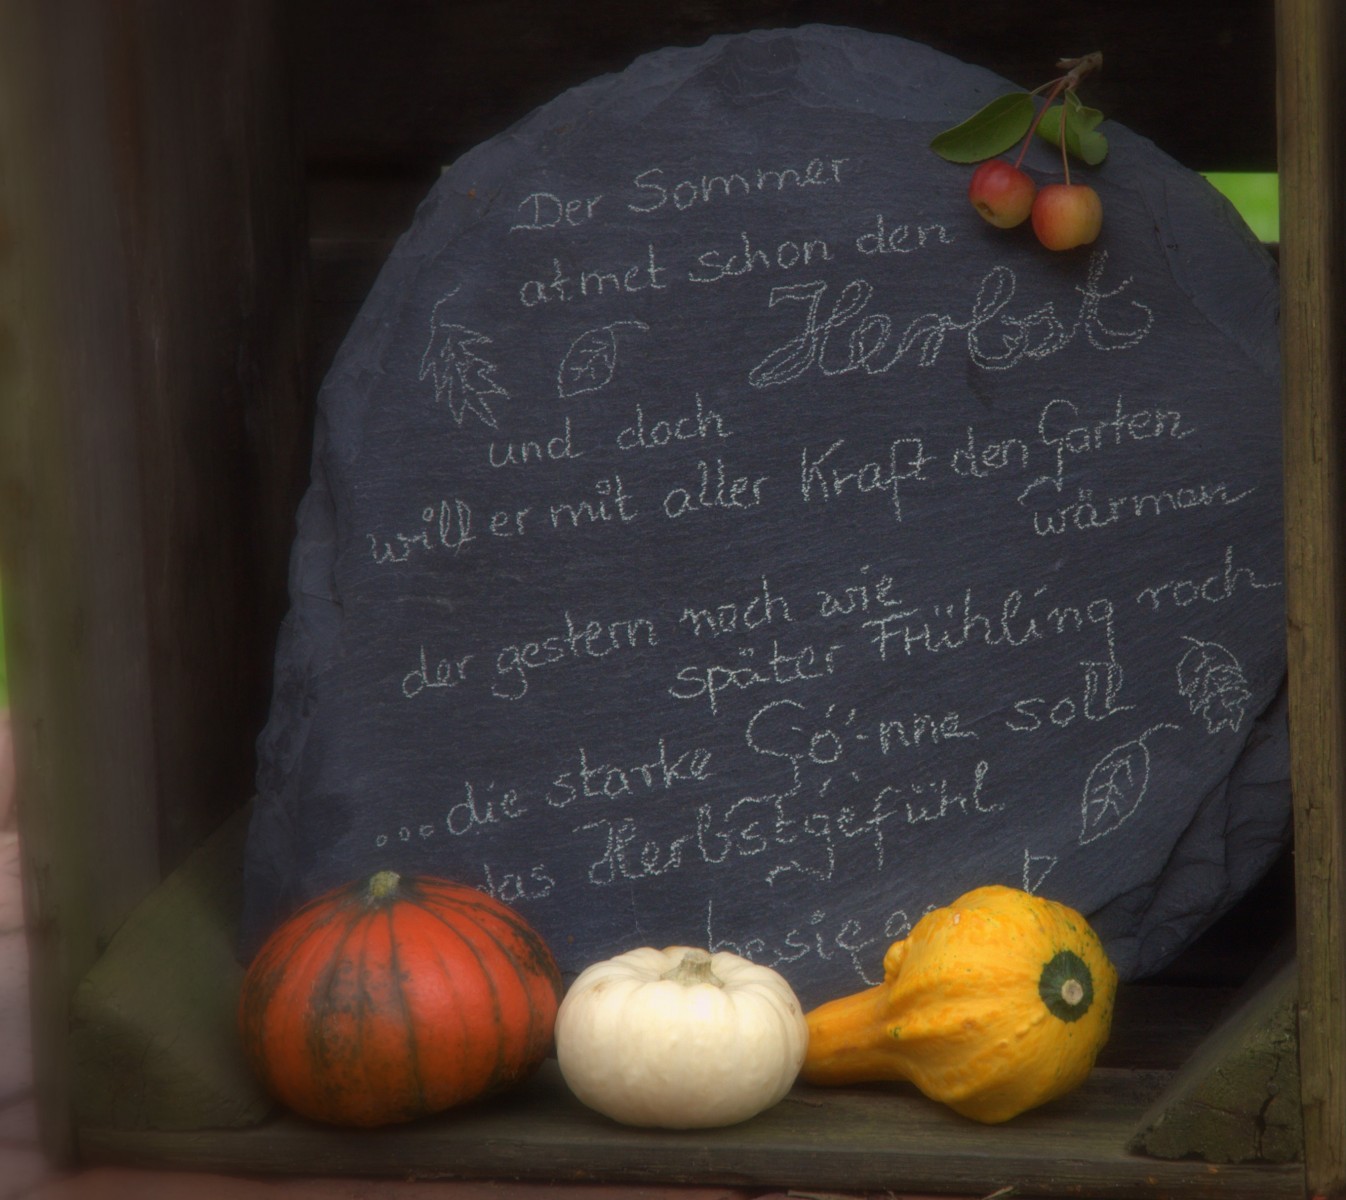 Der Sommer
atmet schon den
Herbst
und doch
will er mit aller Kraft den Garten
wärmen
der gestern noch wie
später Frühling roch
...die starke Sonne soll
das Herbstgefühl